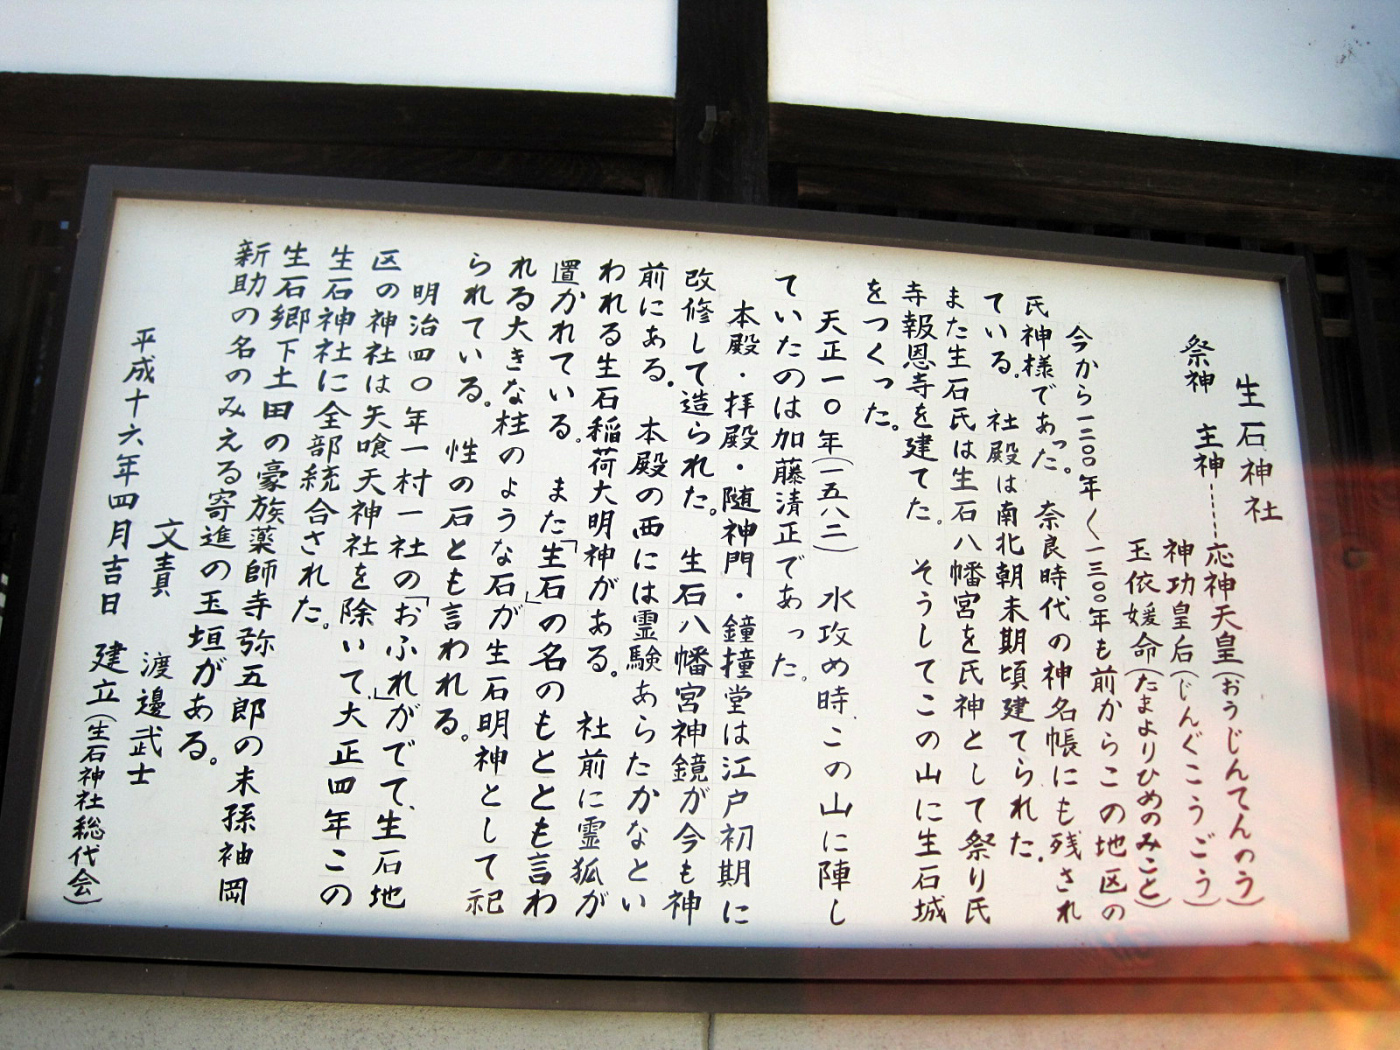 生石神社
祭神　主神------応神天皇(おうじんてんのう)
神功皇后(じんぐこうごう)
玉依媛命(たまよりひめのみこと)
今から一二〇〇年〜一三〇〇年も前からこの地区の
氏神様であった。奈良時代の神名帳にも残され
ている。社殿は南北朝末期頃建てられた。
また生石氏は生石八幡宮を氏神として祭り氏
寺報恩寺を建てた。そうしてこの山に生石城
をつくった。
天正一〇年(一五八二)水攻め時、この山に陣し
ていたのは加藤清正であった。
本殿・拝殿・随神門・鐘撞堂は江戸初期に
改修して造られた。生石八幡宮神鏡が今も神
前にある。本殿の西には霊験あらたかなとい
われる生石稲荷大明神がある。社前に霊狐が
置かれている。また「生石」の名のもととも言わ
れる大きな柱のような石が生石明神として祀
られている。性の石とも言われる。
明治四〇年一村一社の「おふれ」がでて、生石地
区の神社は矢喰天神社を除いて、大正四年この
生石神社に全部統合された。
生石郷下土田の豪族薬師寺弥五郎の末孫袖岡
新助の名のみえる寄進の玉垣がある。
文責　渡邊武士
平成十六年四月吉日　建立(生石神社総代会)